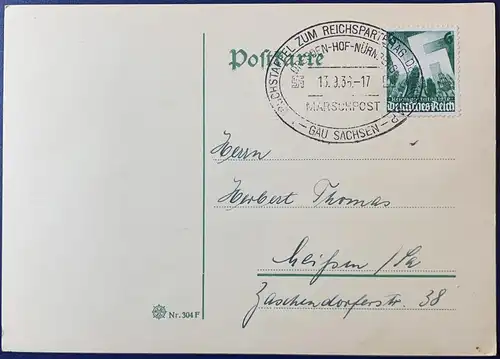 REICHSTAFFEL ZUM REICHSPARTEITAG
DRESDEN-HOF-NÜRNBERG
Postkarte
13.9.36.-17
MARSCHPOST
- GAU SACHSEN -
6
Deutsches Reich
Herrn
Herbert Thomas
Meißen /Sa
Zaschendorferstr. 38
Nr. 304 F